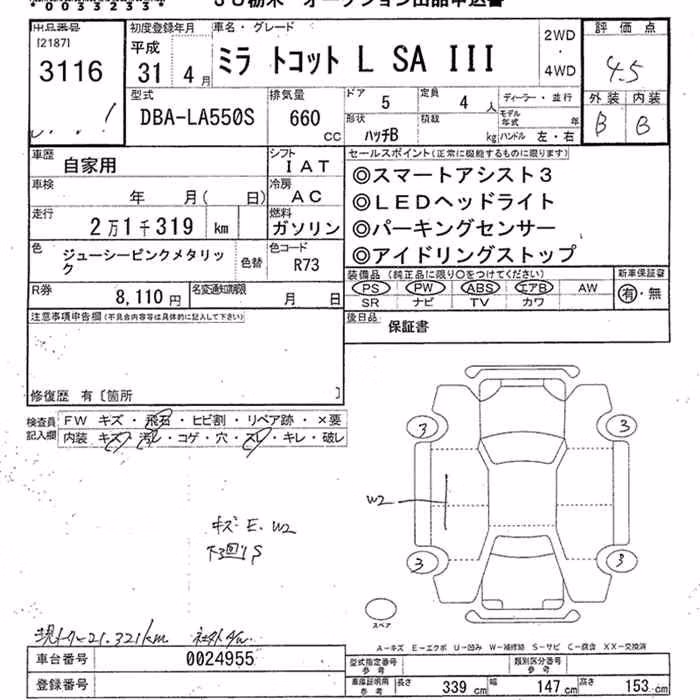 * 0 0 0 3 3 2 3 3 4 *
JU栃木 オークション出品申込書
出品番号 初度登録年月 車名・グレード 2WD 評 価 点
[2187] 平成 ・
3116 31 4月 ミラ トコット L SA III 4WD 4.5
型式 排気量 ドア 5 定員 4 人 ディーラー・並行 外装 内装
DBA-LA550S 660 CC 形状 ハッチB 積載 kg モデル年式 年 B B
ハンドル 左・右
車歴 自家用 シフト IAT セールスポイント(正常に機能するものに限ります)
車検 年 月( 日) 冷房 AC ◎スマートアシスト3
走行 2万1千319 km 燃料 ガソリン ◎LEDヘッドライト
◎パーキングセンサー
色 ジューシーピンクメタリック 色替 色コード R73 ◎アイドリングストップ
装備品(純正品に限り○をつけてください) 新車保証書
R券 8,110円 名変通知期限 月 日 PS PW ABS エアB AW 有・無
SR ナビ TV カワ
注意事項申告欄(不具合内容等は具体的に記入して下さい) 後日品 保証書
修復歴 有〔箇所 〕
検査員 FW キズ・飛石・ヒビ割・リペア跡・×要
記入欄 内装 キズ・汚レ・コゲ・穴・スレ・キレ・破レ
3 3
W2
キズ E. W2
下回りS
3 3
スペア
現メーター21.321km
A-キズ E-エクボ U-凹み W-補修跡 S-サビ C-腐食 XX-交換済
車台番号 0024955 型式指定番号 参考 類別区分番号 参考
登録番号 車庫証明用 参考 長さ 339 cm 幅 147 cm 高さ 153 cm